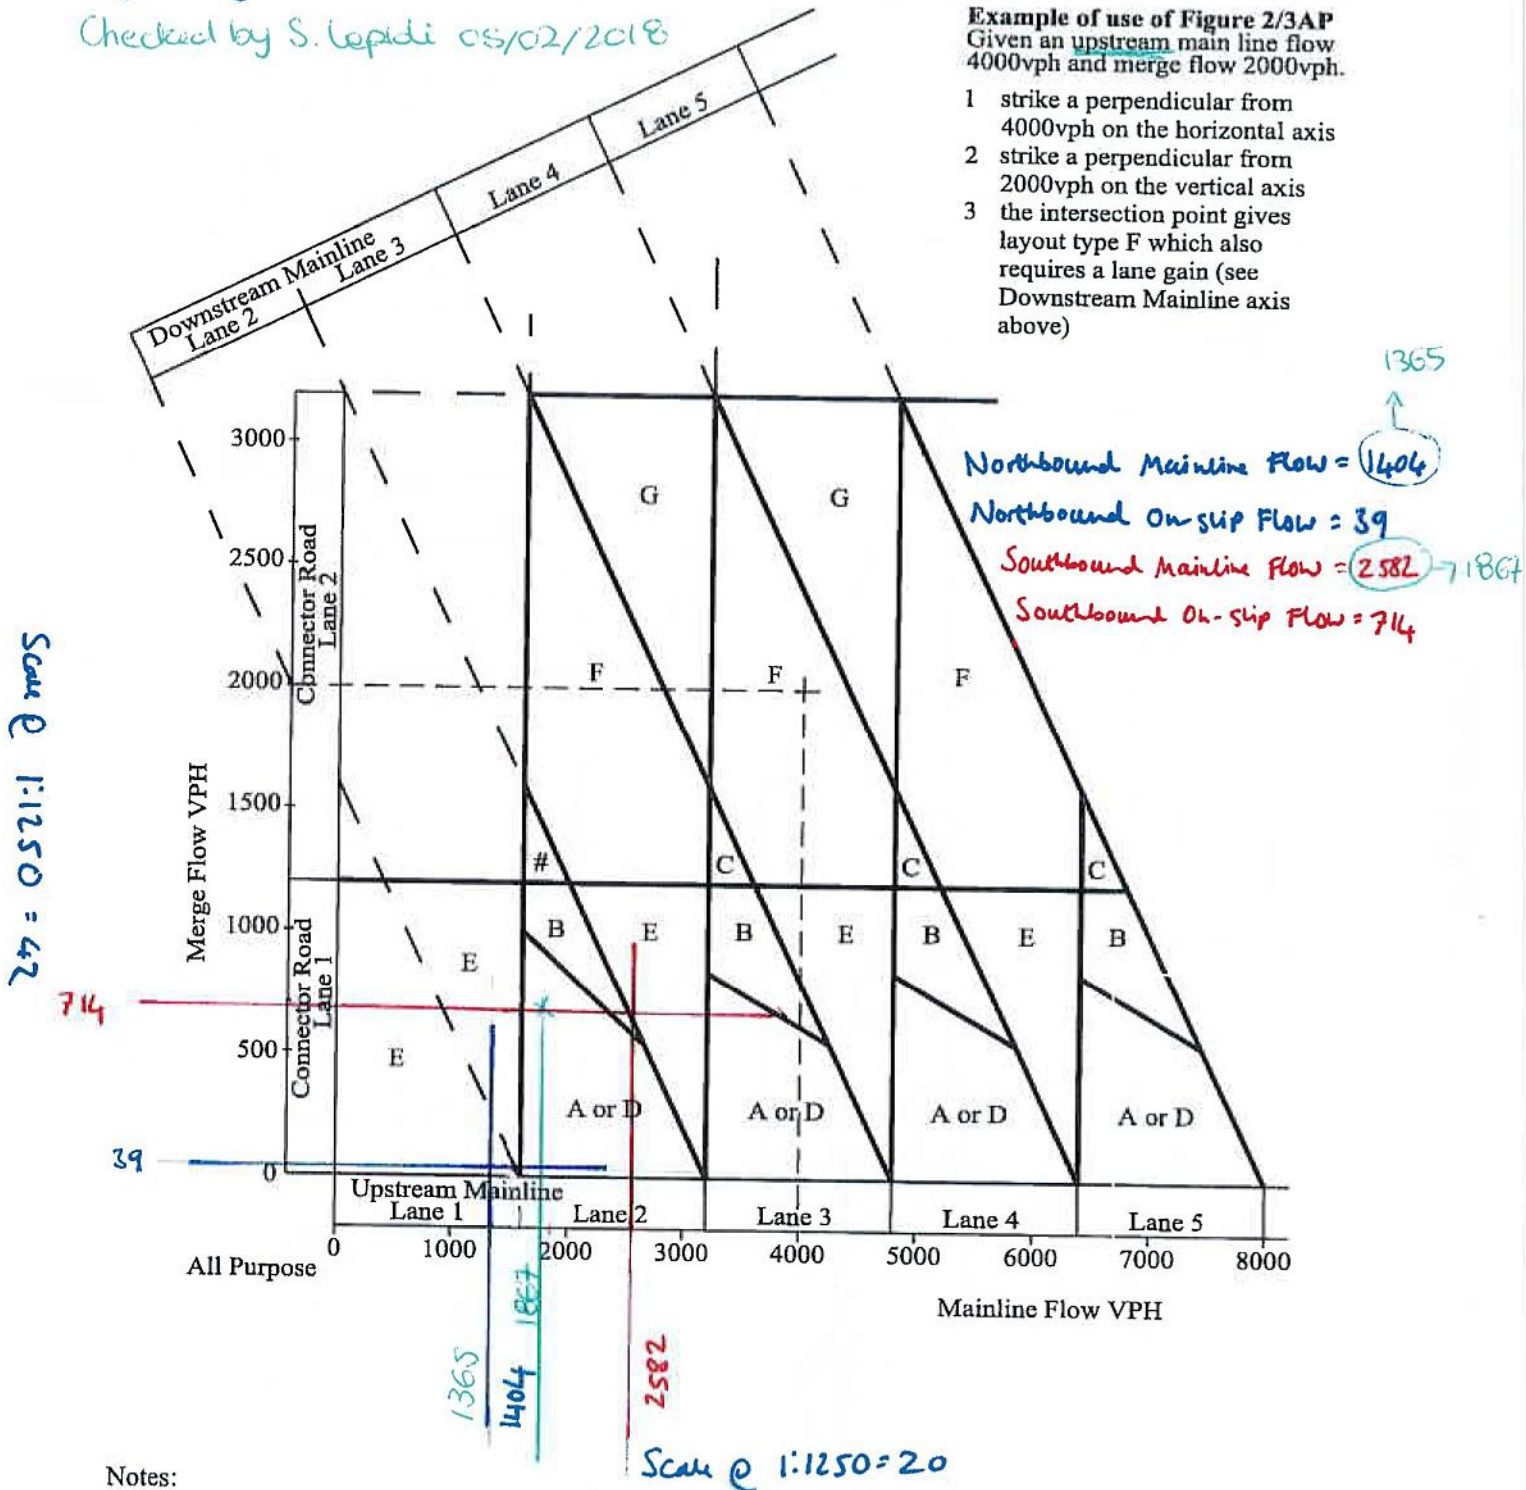 Checked by S. Lepidi 05/02/2018
Example of use of Figure 2/3AP
Given an upstream main line flow
4000vph and merge flow 2000vph.
1 strike a perpendicular from
4000vph on the horizontal axis
2 strike a perpendicular from
2000vph on the vertical axis
3 the intersection point gives
layout type F which also
requires a lane gain (see
Downstream Mainline axis
above)
Downstream Mainline
Lane 2
Lane 3
Lane 4
Lane 5
1365
Northbound Mainline Flow = 1404
Northbound On-slip Flow = 39
Southbound Mainline Flow = 2582 → 1867
Southbound On-slip Flow = 714
Scale @ 1:1250 = 42
Merge Flow VPH
3000
2500
2000
1500
1000
500
0
Connector Road
Lane 2
Connector Road
Lane 1
G
G
F
F
F
#
C
C
C
B
E
B
E
B
E
B
E
E
A or D
A or D
A or D
A or D
714
39
Upstream Mainline
Lane 1
Lane 2
Lane 3
Lane 4
Lane 5
0
1000
2000
3000
4000
5000
6000
7000
8000
All Purpose
Mainline Flow VPH
1365
1404
1867
2582
Scale @ 1:1250 = 20
Notes: